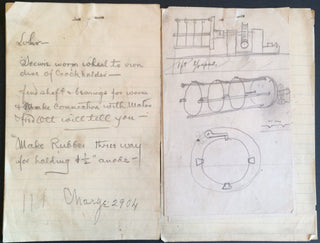 Lohr—
Secure worm wheel to iron
disc of Crock holder—
find shaft & bearings for worm
& Make connection with Motor
Ott will tell you—
Make Rubber three way
for holding 4½" anode—
Charge 2904